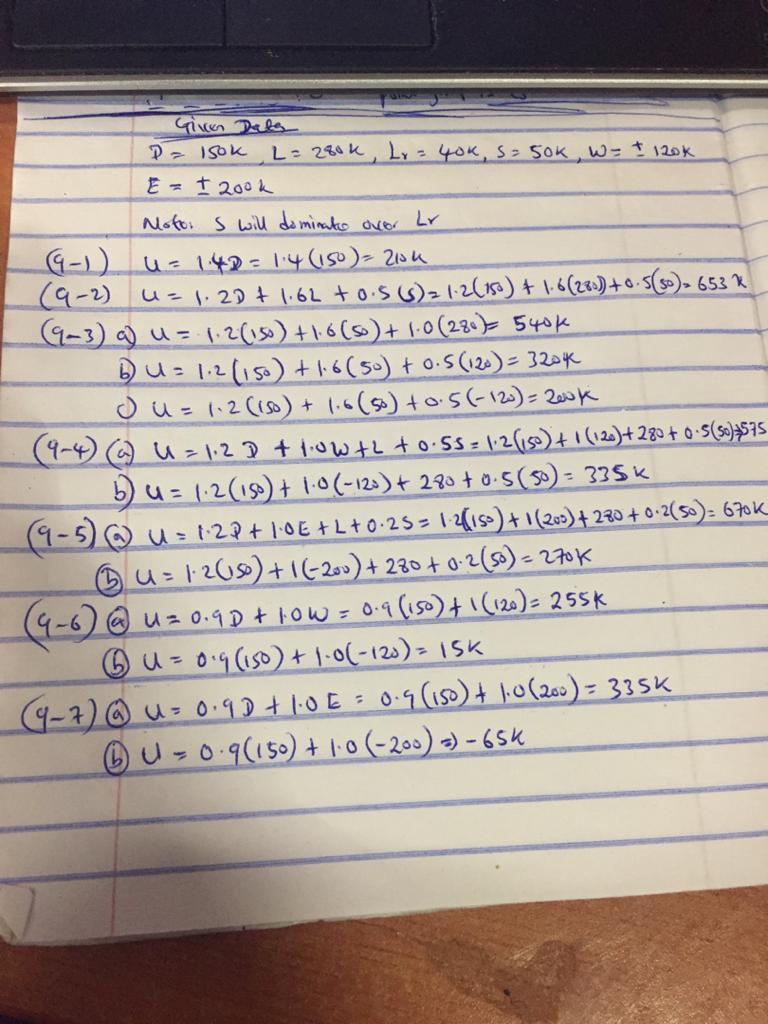 Given Data
D = 150K, L = 280K, Lr = 40K, S = 50K, W = ± 120K
E = ± 200K
Note: S will dominate over Lr
(9-1) U = 1.4D = 1.4(150) = 210K
(9-2) U = 1.2D + 1.6L + 0.5(S) = 1.2(150) + 1.6(280) + 0.5(50) = 653 K
(9-3) a) U = 1.2(150) + 1.6(50) + 1.0(280) = 540K
b) U = 1.2(150) + 1.6(50) + 0.5(120) = 320K
c) U = 1.2(150) + 1.6(50) + 0.5(-120) = 200K
(9-4) (a) U = 1.2D + 1.0W + L + 0.5S = 1.2(150) + 1(120) + 280 + 0.5(50) = 575
b) U = 1.2(150) + 1.0(-120) + 280 + 0.5(50) = 335K
(9-5) (a) U = 1.2D + 1.0E + L + 0.2S = 1.2(150) + 1(200) + 280 + 0.2(50) = 670K
(b) U = 1.2(150) + 1(-200) + 280 + 0.2(50) = 270K
(9-6) (a) U = 0.9D + 1.0W = 0.9(150) + 1(120) = 255K
(b) U = 0.9(150) + 1.0(-120) = 15K
(9-7) (a) U = 0.9D + 1.0E = 0.9(150) + 1.0(200) = 335K
(b) U = 0.9(150) + 1.0(-200) => -65K